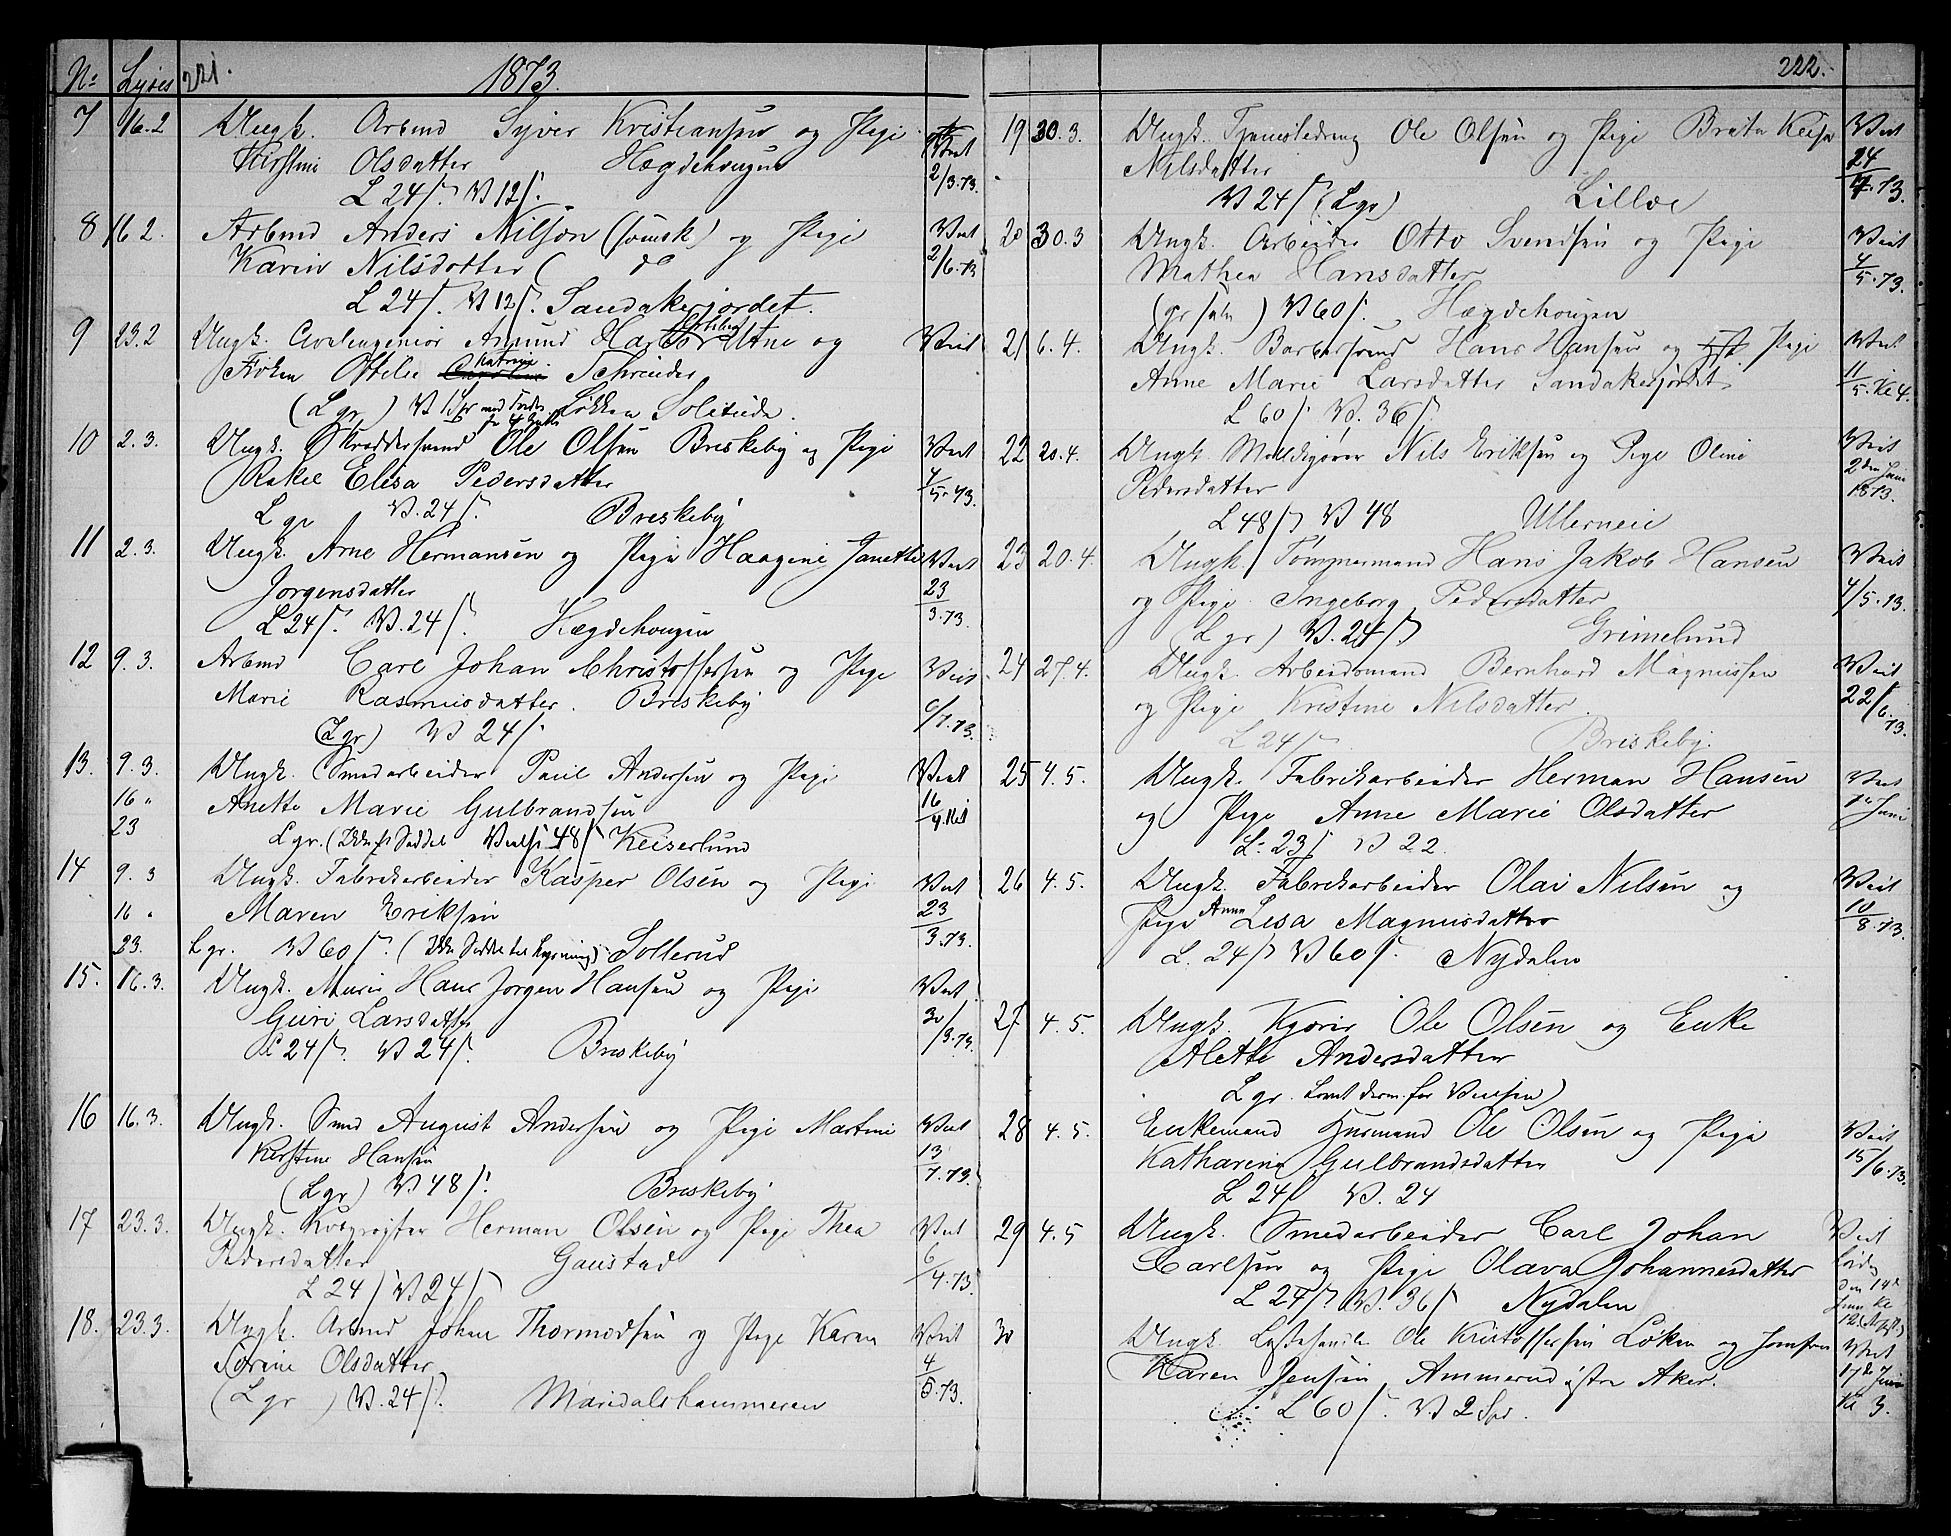 No Lyses 221. 1873.
7 16.2 Ungk. Arbmd Syver Kristiansen og Pige Viet
Kirstine Olsdatter Hægdehougen 2/3.73.
L 24 /. V 12 /.
8 16 2. Arbmd Anders Nilson (svensk) og Pige Viet
Karin Nilsdotter ( do 2/6.73
L 24 /. V 12 /. Sandakerjordet.
9 23.2 Ungk. Amund og Viet
Frøken Ottilie Katrine Schreuder
(L gr) V Løkken Solitude.
10 2.3. Ungk. Skræddersvend Ole Olsen Breskeby og Pige Viet
Rakel Elisa Pedersdatter 4/5.73.
L gr V. 24 /. Breskeby
11 2.3. Ungk. Arne Hermansen og Pige Haagine Janette Viet
Jørgensdatter 23/3.73.
L 24 /. V. 24 /. Hægdehougen
12 9.3. Arbmd Carl Johan Christoffersen og Pige Viet
Marie Rasmusdatter. Breskeby 6/7.73.
(L gr) V 24 /.
13. 9.3. Ungk. Smedarbeider Paul Andersen og Pige Viet
16 " Anette Marie Gulbrandsen 16/4
23 L gr. 48 / Keiserlund
14 9.3 Ungk. Fabrikarbeider Kasper Olsen og Pige Viet
16 " Maren Eriksen 23/3.73.
23. L gr. V 60 /. Sollerud
15. 16.3. Ungk. Murer Hans Jørgen Hansen og Pige Viet
Guri Larsdatter 30/3.73.
L 24 /. V 24 /. Breskeby
16 16.3. Ungk. Smed August Andersen og Pige Martine Viet
Kirstine Hansen 13/7.73.
(L gr) V 48 /. Breskeby
17 23.3. Ungk. Herman Olsen og Pige Thea Viet
Pedersdatter Gaustad 6/4.73.
L 24 / V 24 /
18. 23.3. Ungk. Arbmd Johan Thormodsen og Pige Karen Viet
Sorine Olsdatter 4/5.73.
(L gr ) V. 24 /. Maridalshammeren
222.
19 30.3. Ungk. Tjenestedreng Ole Olsen og Pige Brita Viet
Nilsdatter 24/ 73.
V 24 / (L gr) Lilloe
20 30.3 Ungk. Arbeider Otto Svendsen og Pige Viet
Mathea Hansdatter 4/5.73.
V 60 /. Hægdehougen
21 6.4. Ungk. Barbersvend Hans Hansen og Pige Viet
Anne Marie Larsdatter Sandakerjordet 11/5. Kl 4.
L 60 / V. 36 /
22 20.4. Ungk. Nils Eriksen og Pige Oline Viet
Pedersdatter 2den Juni 1873.
L 48 / V 48 Ullerneie
23 20.4. Ungk. Tømmermand Hans Jakob Hansen Viet
og Pige Ingeborg Pedersdatter 4/5.73.
(L gr) V. 24 / Grimelund
24 27.4. Ungk. Arbeidsmand Bernhard Magnussen Viet
og Pige Kristine Nilsdatter. 22/6.73.
L 24 / Breskeby.
25 4.5. Ungk. Fabrikarbeider Herman Hansen Viet
og Pige Anne Marie Olsdatter Juni
L. 23 / V 22.
26 4.5. Ungk. Fabrikarbeider Olai Nilsen og Viet
Pige Anne Lisa Magnusdatter 10/8.73.
L. 24 / V 60 /. Nydalen
27 4.5. Ungk. Kjører Ole Olsen og Enke
Alette Andersdatter
L gr.
28 4.5. Enkemand Husmand Ole Olsen og Pige Viet
Katharine Gulbrandsdatter 15/6.73.
L 24 / V. 24
29 4.5 Ungk. Smedarbeider Carl Johan Viet
Carlsen og Pige Olava Johannesdatter Lørdag
L 24 / V. 36 / Nydalen den 14de
Juni Kl
30 Ungk. Ole Kristoffersen Løken og Jomfru Viet
Karen Jensen Ammerud østre Aker. 17de Juni
L 60 /. V 2 Spd. Kl 3.